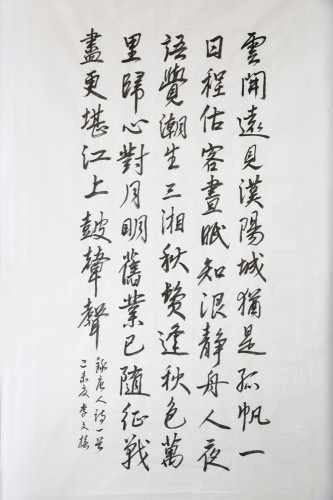 雲開遠見漢陽城猶是孤帆一
日程估客晝眠知浪静舟人夜
語覺潮生三湘秋鬢逢秋色萬
里歸心對月明舊業已随征戰
盡更堪江上鼓鼙聲
録唐人詩一首
乙未夏李文